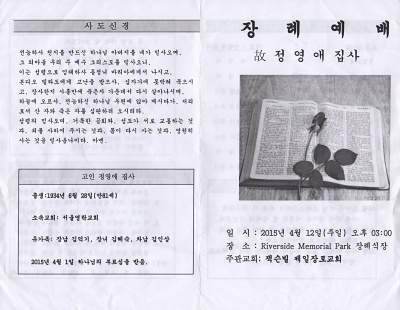 사 도 신 경
전능하사 천지를 만드신 하나님 아버지를 내가 믿사오며,
그 외아들 우리 주 예수 그리스도를 믿사오니,
이는 성령으로 잉태하사 동정녀 마리아에게서 나시고,
본디오 빌라도에게 고난을 받으사, 십자가에 못박혀 죽으시
고, 장사한지 사흘만에 죽은자 가운데서 다시 살아나시며,
하늘에 오르사, 전능하신 하나님 우편에 앉아 계시다가, 저리
로서 산 자와 죽은 자를 심판하러 오시리라.
성령을 믿사오며, 거룩한 공회와, 성도가 서로 교통하는 것
과, 죄를 사하여 주시는 것과, 몸이 다시 사는 것과, 영원히
사는 것을 믿사옵나이다. 아멘.
고인 정영애 집사
출생:1934년 6월 28일(만81세)
소속교회: 서울영락교회
유가족: 장남 김덕기, 장녀 김혜숙, 차남 김인상
2015년 4월 1일 하나님의 부르심을 받음.
장 례 예 배
故 정영애 집사
일 시 : 2015년 4월 12일(주일) 오후 03:00
장 소 : Riverside Memorial Park 장례식장
주관교회: 잭슨빌 제일장로교회